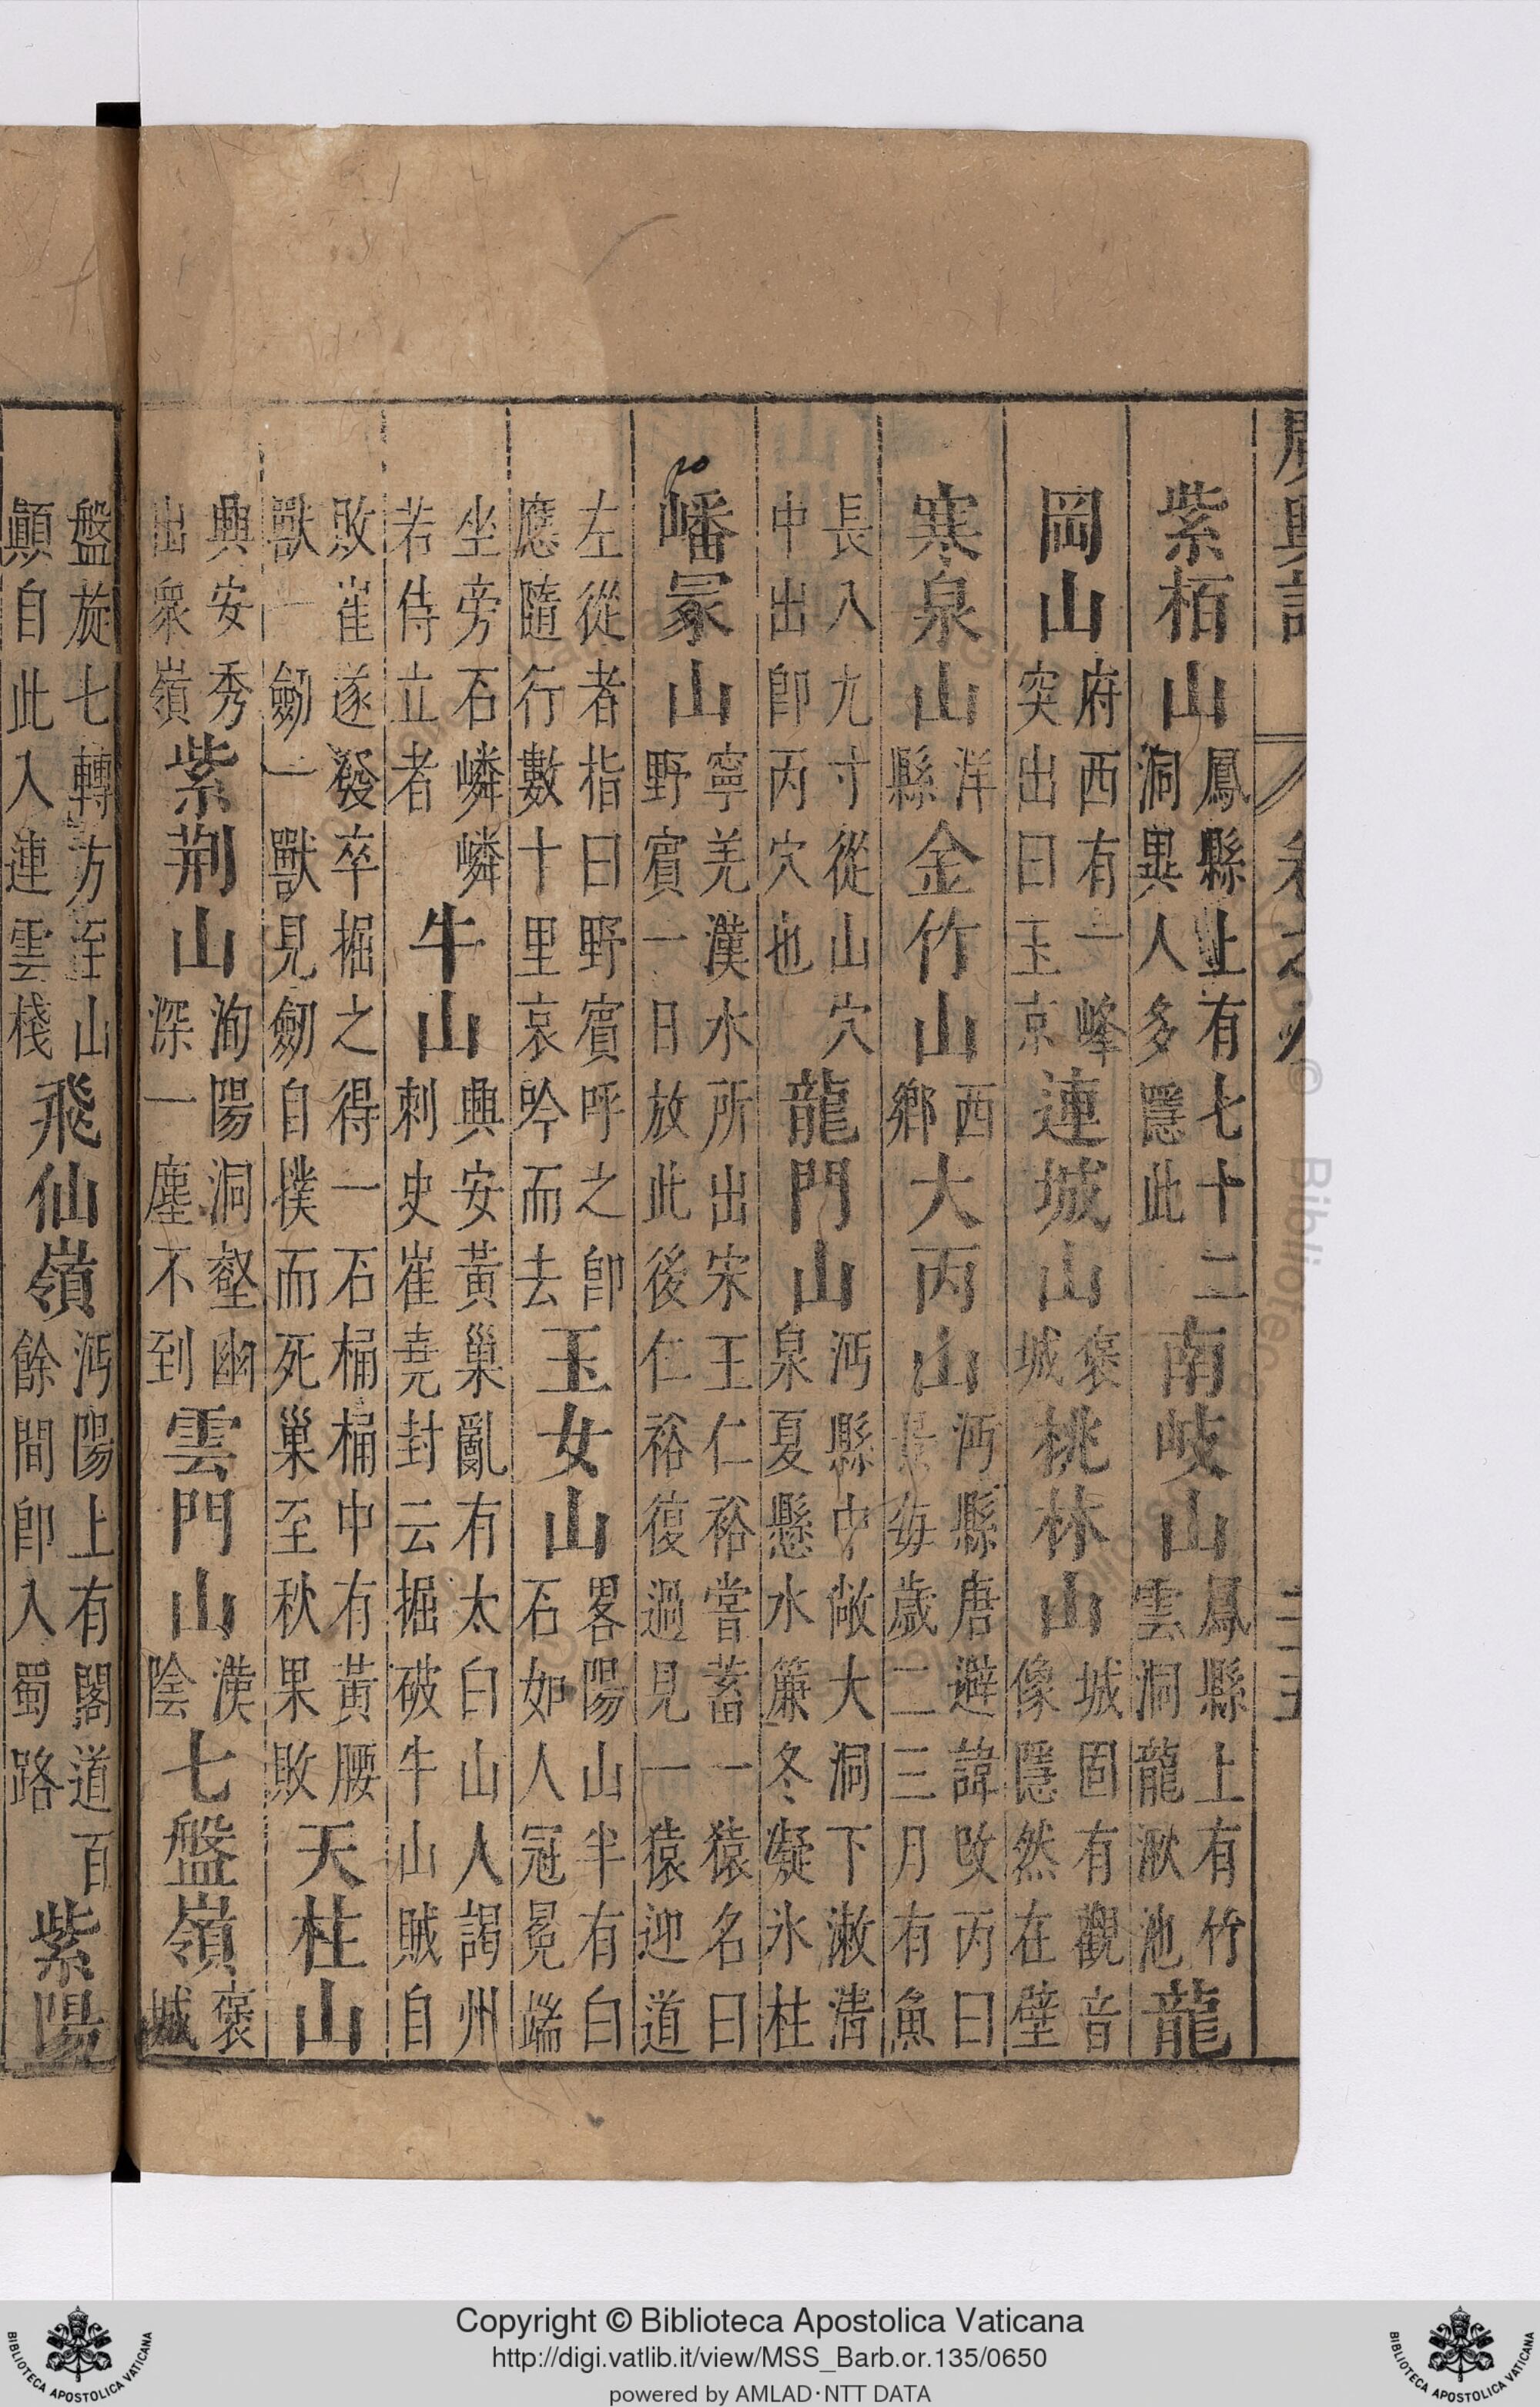 紫栢山鳳縣上有七十二洞異人多隱此南岐山鳳縣上有竹雲洞龍湫池龍
岡山府西有一峰突出曰玉京連城山褒城桃林山城固有觀音像隱然在壁
寒泉山洋縣金竹山西鄉大丙山沔縣唐避諱改丙曰景每歲二三月有魚
長八九寸從山穴中出卽丙穴也龍門山沔縣中敞大洞下漱清泉夏懸水簾冬凝氷柱
嶓冢山寧羌漢水所出宋王仁裕嘗蓄一猿名曰野賓一日放此後仁裕復過見一猿迎道
左從者指曰野賓呼之卽應隨行數十里哀吟而去玉女山畧陽山半有白石如人冠冕端
坐旁石嶙嶙若侍立者牛山興安黃巢亂有太白山人謁州刺史崔堯封云掘破牛山賊自
敗崔遂發卒掘之得一石桶桶中有黃腰獸一劒一獸見劒自撲而死巢至秋果敗天柱山
興安秀出衆嶺紫荆山洵陽洞壑幽深一塵不到雲門山漢陰七盤嶺褒城
盤旋七轉方至山顚自此入連雲棧飛仙嶺沔陽上有閣道百餘間卽入蜀路紫陽
Copyright © Biblioteca Apostolica Vaticana
http://digi.vatlib.it/view/MSS_Barb.or.135/0650
powered by AMLAD·NTT DATA
BIBLIOTECA APOSTOLICA VATICANA
BIBLIOTECA APOSTOLICA VATICANA